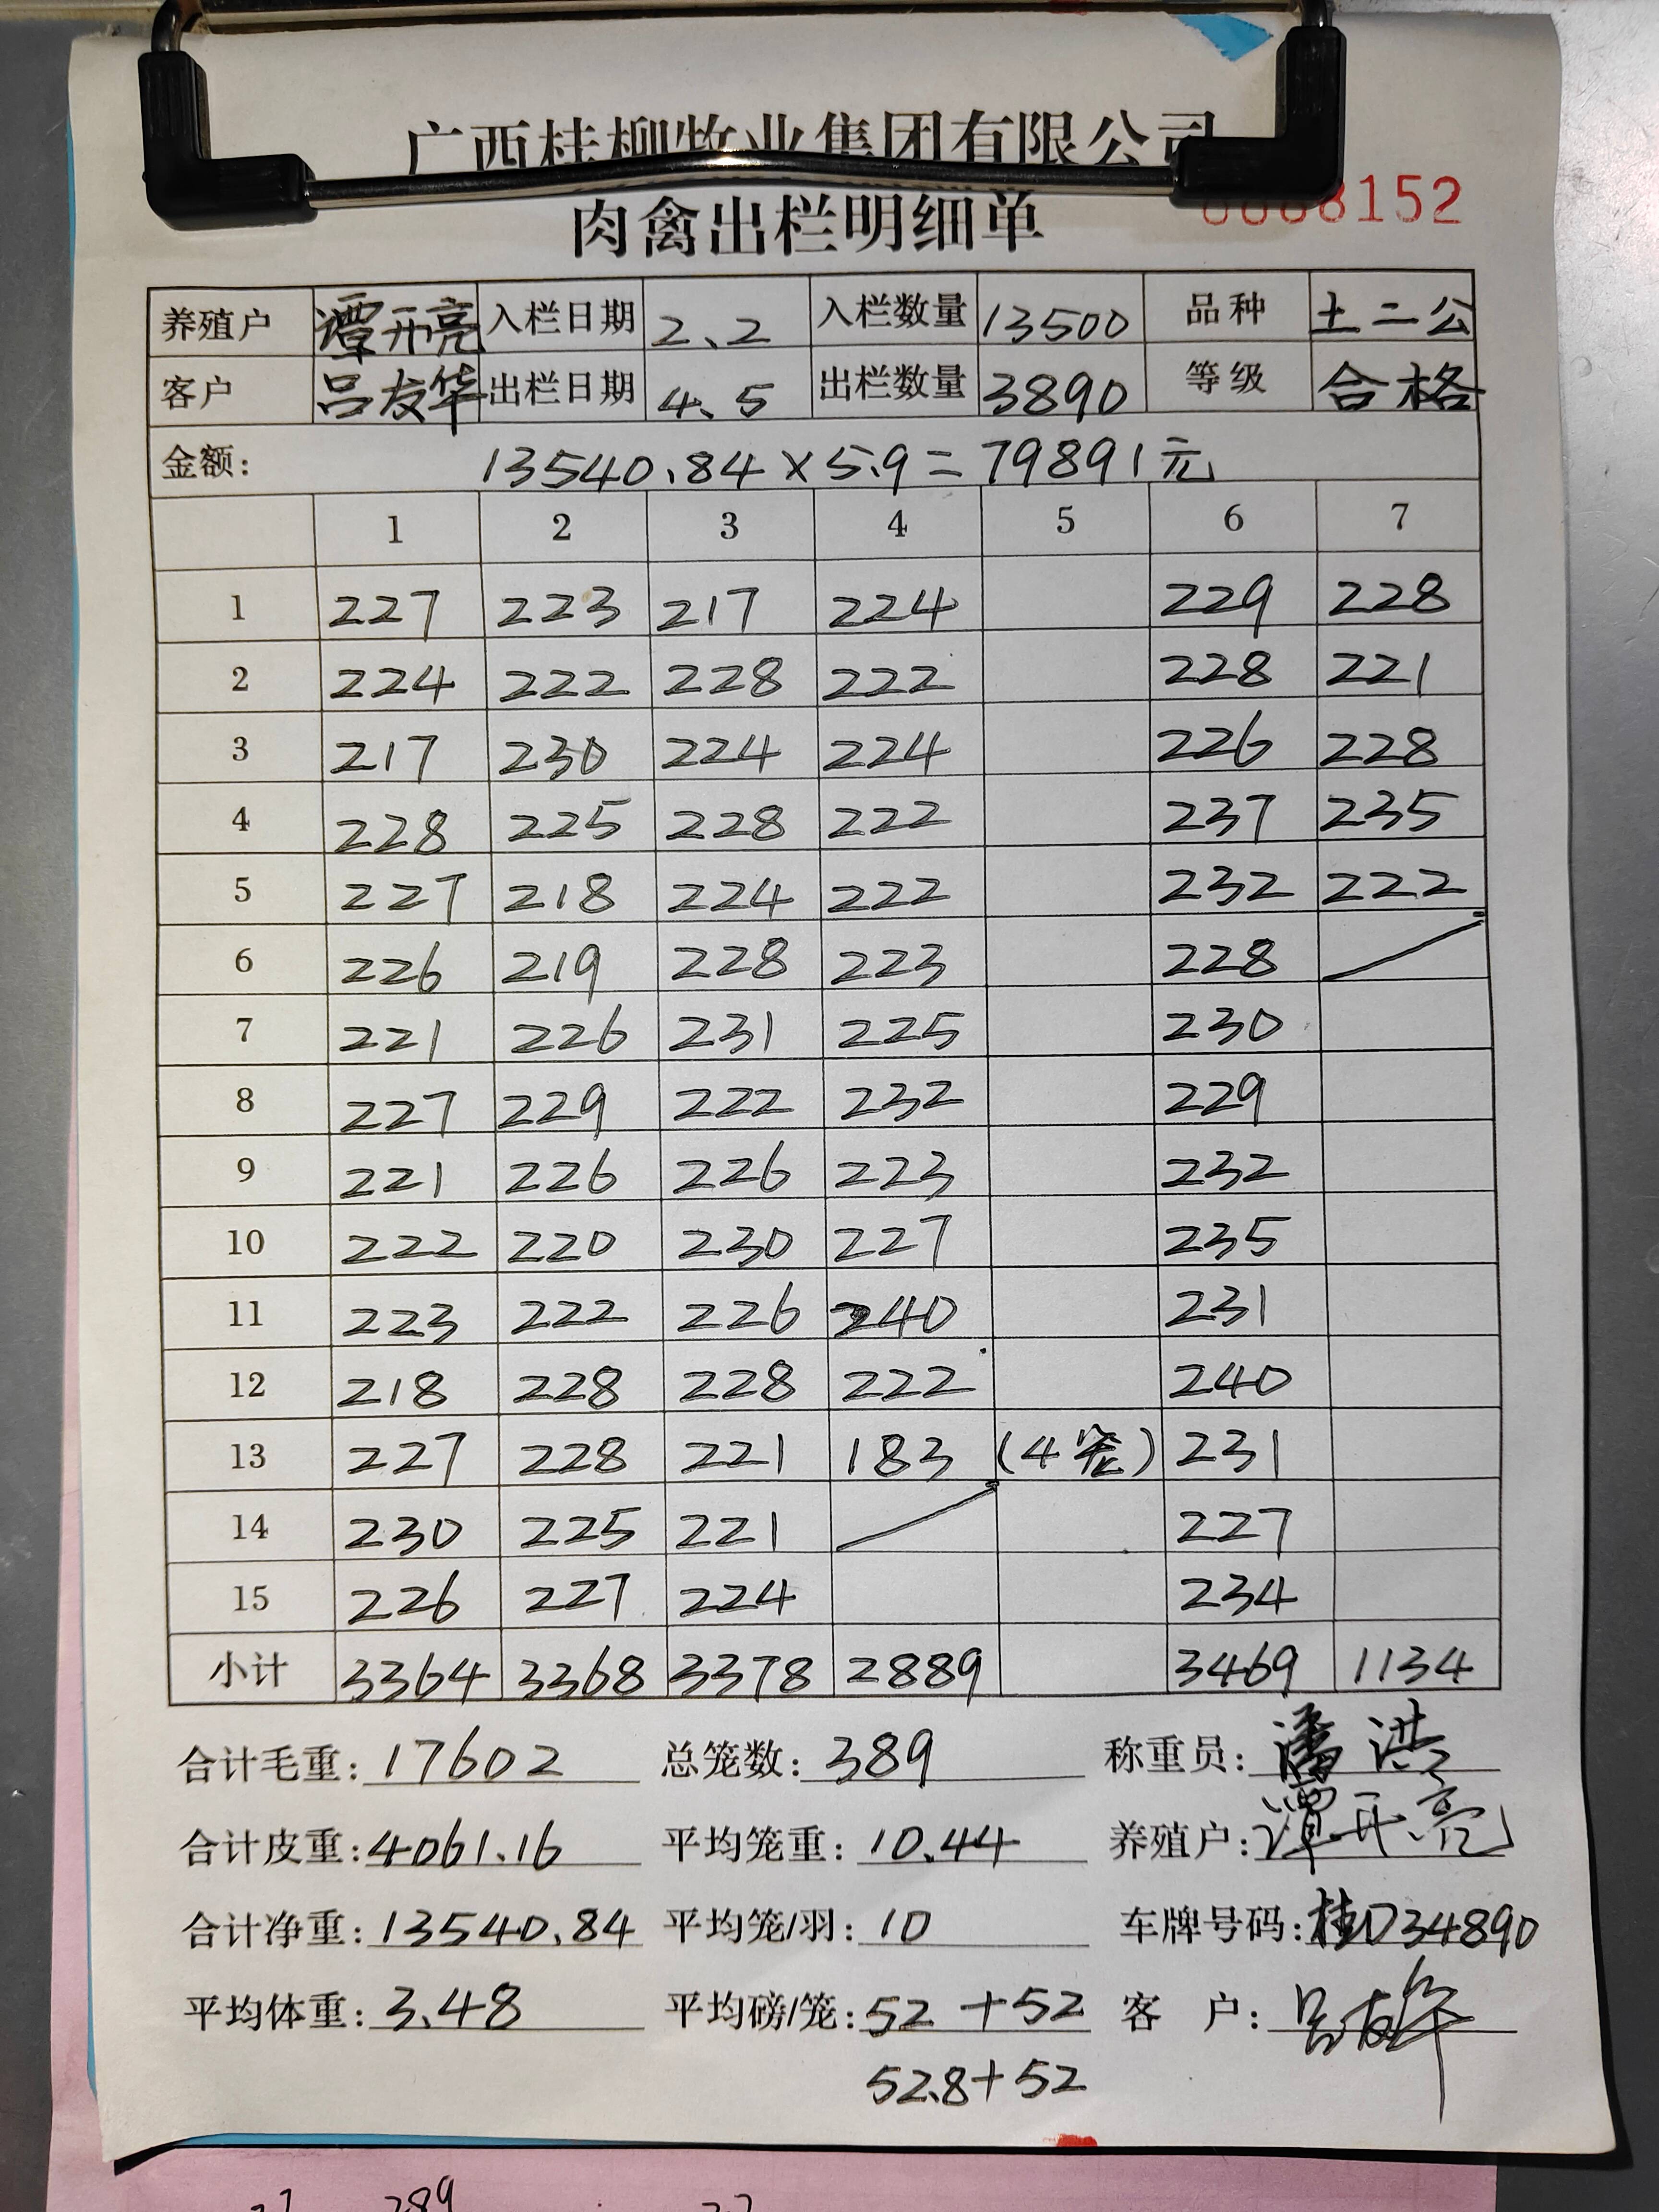 广西桂柳牧业集团有限公司
肉禽出栏明细单
8152
养殖户 谭开亮 入栏日期 2.2 入栏数量 13500 品种 土二公
客户 吕友华 出栏日期 4.5 出栏数量 3890 等级 合格
金额: 13540.84×5.9=79891元
1 2 3 4 5 6 7
1 227 223 217 224 229 228
2 224 222 228 222 228 221
3 217 230 224 224 226 228
4 228 225 228 222 237 235
5 227 218 224 222 232 222
6 226 219 228 223 228
7 221 226 231 225 230
8 227 229 222 232 229
9 221 226 226 223 232
10 222 220 230 227 235
11 223 222 226 240 231
12 218 228 228 222 240
13 227 228 221 183 (4笼) 231
14 230 225 221 227
15 226 227 224 234
小计 3364 3368 3378 2889 3469 1134
合计毛重: 17602 总笼数: 389 称重员: 潘洪
合计皮重: 4061.16 平均笼重: 10.44 养殖户: 谭开亮
合计净重: 13540.84 平均笼/羽: 10 车牌号码: 桂D34890
平均体重: 3.48 平均磅/笼: 52+52 客户: 吕友华
52.8+52
289